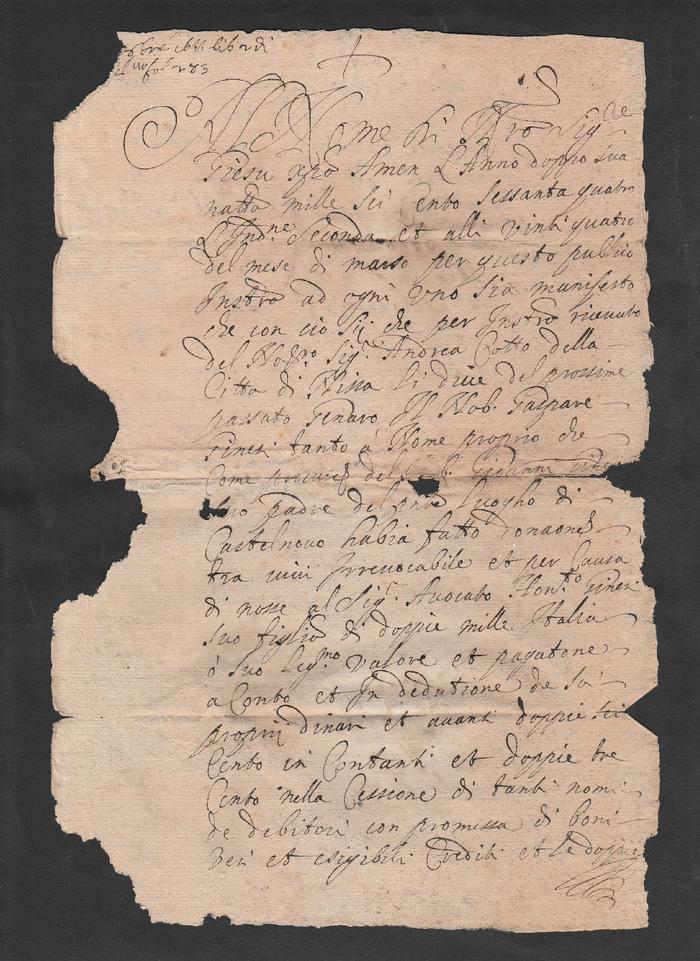 libr di
fol 283
Al Nome di Nro Sigre
Giesu Xpo Amen L'Anno doppo sua
natta mille sei cento sessanta quatro
L'Indne seconda et alli vinti quatro
del mese di marso per questo publico
Instro ad ogni uno sia manifesto
che con cio sij che per Instro riceuuto
del Nob.ro Sigr Andrea Cotto della
Citta di Nissa li dieci del prossime
passato Genaro Il Nob. Gaspare
Gineri tanto a Nome proprio che
Come procure del Giovanni
suo padre del pnte luogho di
Castelnouo habia fatto donaone
tra uiui Irreuocabile et per Causa
di nosse al Sigr Auocato Hon.to Gineri
suo figlio di doppie mille Italia
ò suo legmo valore et pagatone
a Conto et In dedutione de soi
proprij dinari et auanti doppie sei
Cento in Contanti et doppie tre
Cento nella Cessione di tanti nomi
de debitori con promessa di boni
veri et esigibili Crediti et le doppie